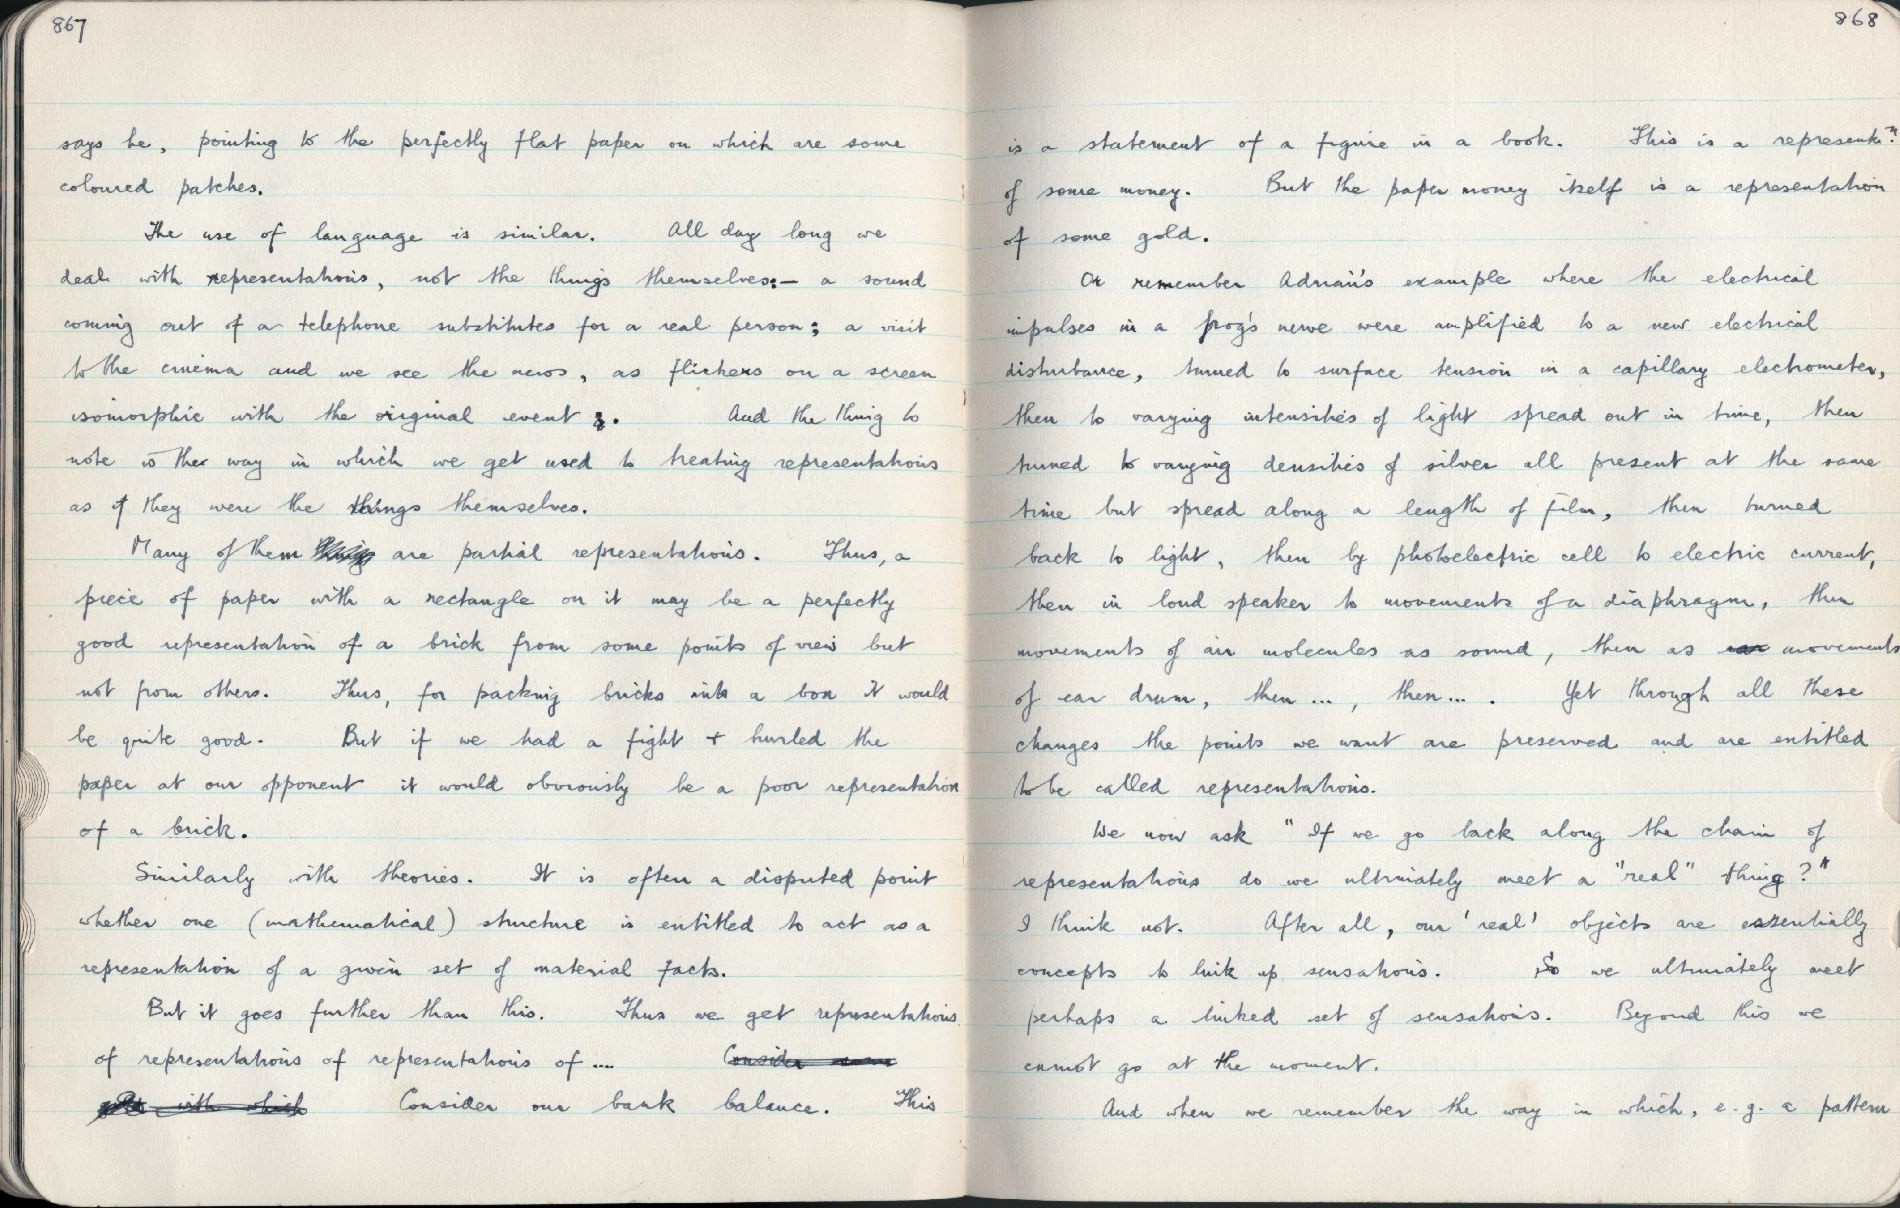 867
says he, pointing to the perfectly flat paper on which are some
coloured patches.
The use of language is similar. All day long we
deal with representations, not the things themselves:— a sound
coming out of a telephone substitutes for a real person; a visit
to the cinema and we see the news, as flickers on a screen
isomorphic with the original event. And the thing to
note is the way in which we get used to treating representations
as if they were the things themselves.
Many of them are partial representations. Thus, a
piece of paper with a rectangle on it may be a perfectly
good representation of a brick from some points of view but
not from others. Thus, for packing bricks into a box it would
be quite good. But if we had a fight + hurled the
paper at our opponent it would obviously be a poor representation
of a brick.
Similarly with theories. It is often a disputed point
whether one (mathematical) structure is entitled to act as a
representation of a given set of material facts.
But it goes further than this. Thus we get representations
of representations of representations of .... Consider some
with which Consider our bank balance. This
868
is a statement of a figure in a book. This is a representn.
of some money. But the paper money itself is a representation
of some gold.
Or remember Adrian's example where the electrical
impulses in a frog's nerve were amplified to a new electrical
disturbance, turned to surface tension in a capillary electrometer,
then to varying intensities of light spread out in time, then
turned to varying densities of silver all present at the same
time but spread along a length of film, then turned
back to light, then by photoelectric cell to electric current,
then in loud speaker to movements of a diaphragm, then
movements of air molecules as sound, then as movements
of ear drum, then ... , then ... . Yet through all these
changes the points we want are preserved and are entitled
to be called representations.
We now ask "If we go back along the chain of
representations do we ultimately meet a "real" thing?"
I think not. After all, our 'real' objects are essentially
concepts to link up sensations. So we ultimately meet
perhaps a linked set of sensations. Beyond this we
cannot go at the moment.
And when we remember the way in which, e.g. a pattern